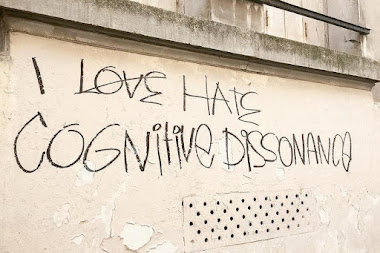 I LOVE HATE
COGNitivE DISSONANCE